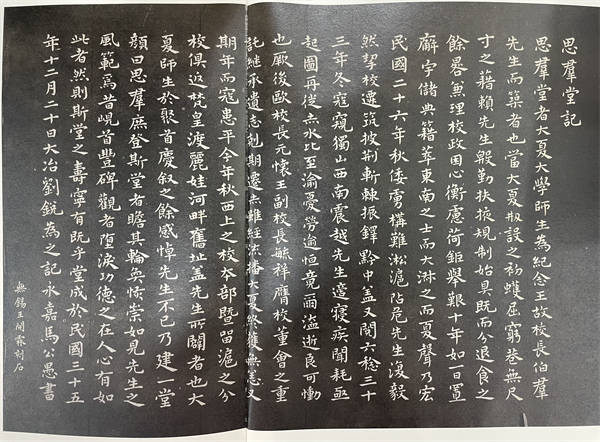 思羣堂記
思羣堂者大夏大學師生為紀念王故校長伯羣
先生而築者也當大夏刱設之初蠖屈窮巷無尺
寸之藉賴先生殷勤扶掖規制始具既而分退食之
餘晷兼理校政困心衡慮荷鉅舉艱十年如一日置
廨宇儲典籍萃東南之士而大淋之而夏聲乃宏
民國二十六年秋倭虜構難淞滬阽危先生復毅
然挈校遷筑披荆斬棘振鐸黔中盖又閱六稔三十
三年冬寇窺獨山西南震越先生遘寢疾聞耗亟
起圖再徙赤水比至渝憂勞逾恒竟爾溘逝良可慟
也厥後歐校長元懷王副校長毓祥膺校董會之重
託繼承遺志剋期遷赤雖經流播大夏終獲無恙又
期年而寇患平今年秋西上之校本部暨留滬之分
校俱返梵皇渡麗娃河畔舊址盖先生所闢者也大
夏師生於聚首慶叙之餘感悼先生不已乃建一堂
顔曰思羣庶登斯堂者瞻其輪奐崇如見先生之
風範焉昔峴首豐碑觀者墮淚功德之在人心有如
此者然則斯堂之壽寧有既乎堂成於民國三十五
年十二月二十日大冶劉銳為之記永嘉馬公愚書
無錫王開霖刻石